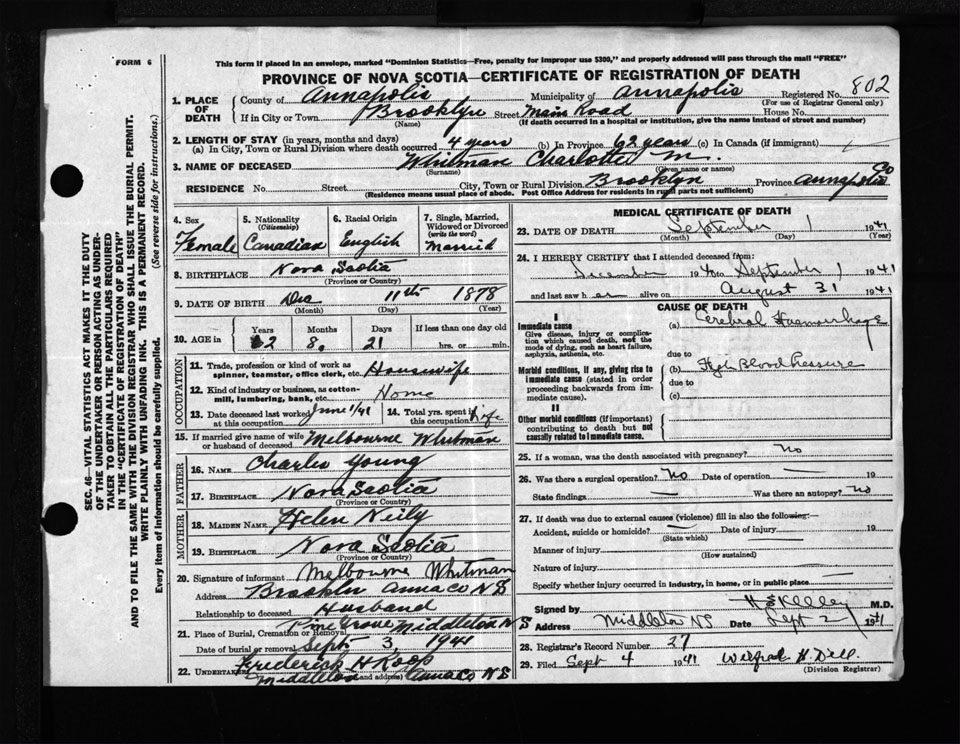 FORM 6
This form if placed in an envelope, marked "Dominion Statistics—Free, penalty for improper use $300," and properly addressed will pass through the mail "FREE"
PROVINCE OF NOVA SCOTIA—CERTIFICATE OF REGISTRATION OF DEATH
SEC. 46—VITAL STATISTICS ACT MAKES IT THE DUTY
OF THE UNDERTAKER OR PERSON ACTING AS UNDER-
TAKER TO OBTAIN ALL THE PARTICULARS REQUIRED
IN THE "CERTIFICATE OF REGISTRATION OF DEATH"
AND TO FILE THE SAME WITH THE DIVISION REGISTRAR WHO SHALL ISSUE THE BURIAL PERMIT.
WRITE PLAINLY WITH UNFADING INK. THIS IS A PERMANENT RECORD.
Every item of Information should be carefully supplied. (See reverse side for instructions.)
1. PLACE OF DEATH County of Annapolis Municipality of Annapolis Registered No. 802
(For use of Registrar General only)
If in City or Town Brooklyn Street Main Road House No.
(Name) (If death occurred in a hospital or institution, give the name instead of street and number)
2. LENGTH OF STAY (in years, months and days)
(a) In City, Town or Rural Division where death occurred 4 years (b) in Province 62 years (c) In Canada (if immigrant)
3. NAME OF DECEASED Whitman Charlotte M.
(Surname) (Given name or names)
RESIDENCE No. Street City, Town or Rural Division Brooklyn Province Annapolis Co
(Residence means usual place of abode. Post Office Address for residents in rural parts not sufficient)
4. Sex Female
5. Nationality (Citizenship) Canadian
6. Racial Origin English
7. Single, Married, Widowed or Divorced (write the word) Married
8. BIRTHPLACE Nova Scotia
(Province or Country)
9. DATE OF BIRTH Dec 11th 1878
(Month) (Day) (Year)
10. AGE in Years 62 Months 8 Days 21 If less than one day old hrs. or min.
OCCUPATION
11. Trade, profession or kind of work as spinner, teamster, office clerk, etc. Housewife
12. Kind of industry or business, as cotton-mill, lumbering, bank, etc. Home
13. Date deceased last worked at this occupation June 1/41 14. Total yrs. spent in this occupation Life
15. If married give name of wife or husband of deceased Melbourne Whitman
FATHER
16. NAME Charles Young
17. BIRTHPLACE Nova Scotia
(Province or Country)
MOTHER
18. MAIDEN NAME Helen Neily
19. BIRTHPLACE Nova Scotia
(Province or Country)
20. Signature of informant Melbourne Whitman
Address Brooklyn Anna Co N S
Relationship to deceased Husband
21. Place of Burial, Cremation or Removal Pine Grove Middleton N S
Date of burial or removal Sept 3, 1941
22. Undertaker Frederick H Roop
Middleton Anna Co N S
(Name and address)
MEDICAL CERTIFICATE OF DEATH
23. DATE OF DEATH September 1 1941
(Month) (Day) (Year)
24. I HEREBY CERTIFY that I attended deceased from:
December 19 to September 1 1941
and last saw h er alive on August 31 1941
CAUSE OF DEATH
I
Immediate cause
Give disease, injury or complication which caused death, not the mode of dying, such as heart failure, asphyxia, asthenia, etc.
(a) Cerebral Haemorrhage
due to
Morbid conditions, if any, giving rise to immediate cause (stated in order proceeding backwards from immediate cause).
(b) High Blood Pressure
due to
(c)
II
Other morbid conditions (if important) contributing to death but not causally related to immediate cause.
25. If a woman, was the death associated with pregnancy? no
26. Was there a surgical operation? No Date of operation 19
State findings — Was there an autopsy? no
27. If death was due to external causes (violence) fill in also the following:—
Accident, suicide or homicide? — Date of injury 19
(State which)
Manner of injury
(How sustained)
Nature of injury
Specify whether injury occurred in industry, in home, or in public place
Signed by H S Kelley M.D.
Address Middleton N S Date Sept 2 1941
28. Registrar's Record Number 27
29. Filed Sept 4 1941 Wilfred H. Dell.
(Division Registrar)